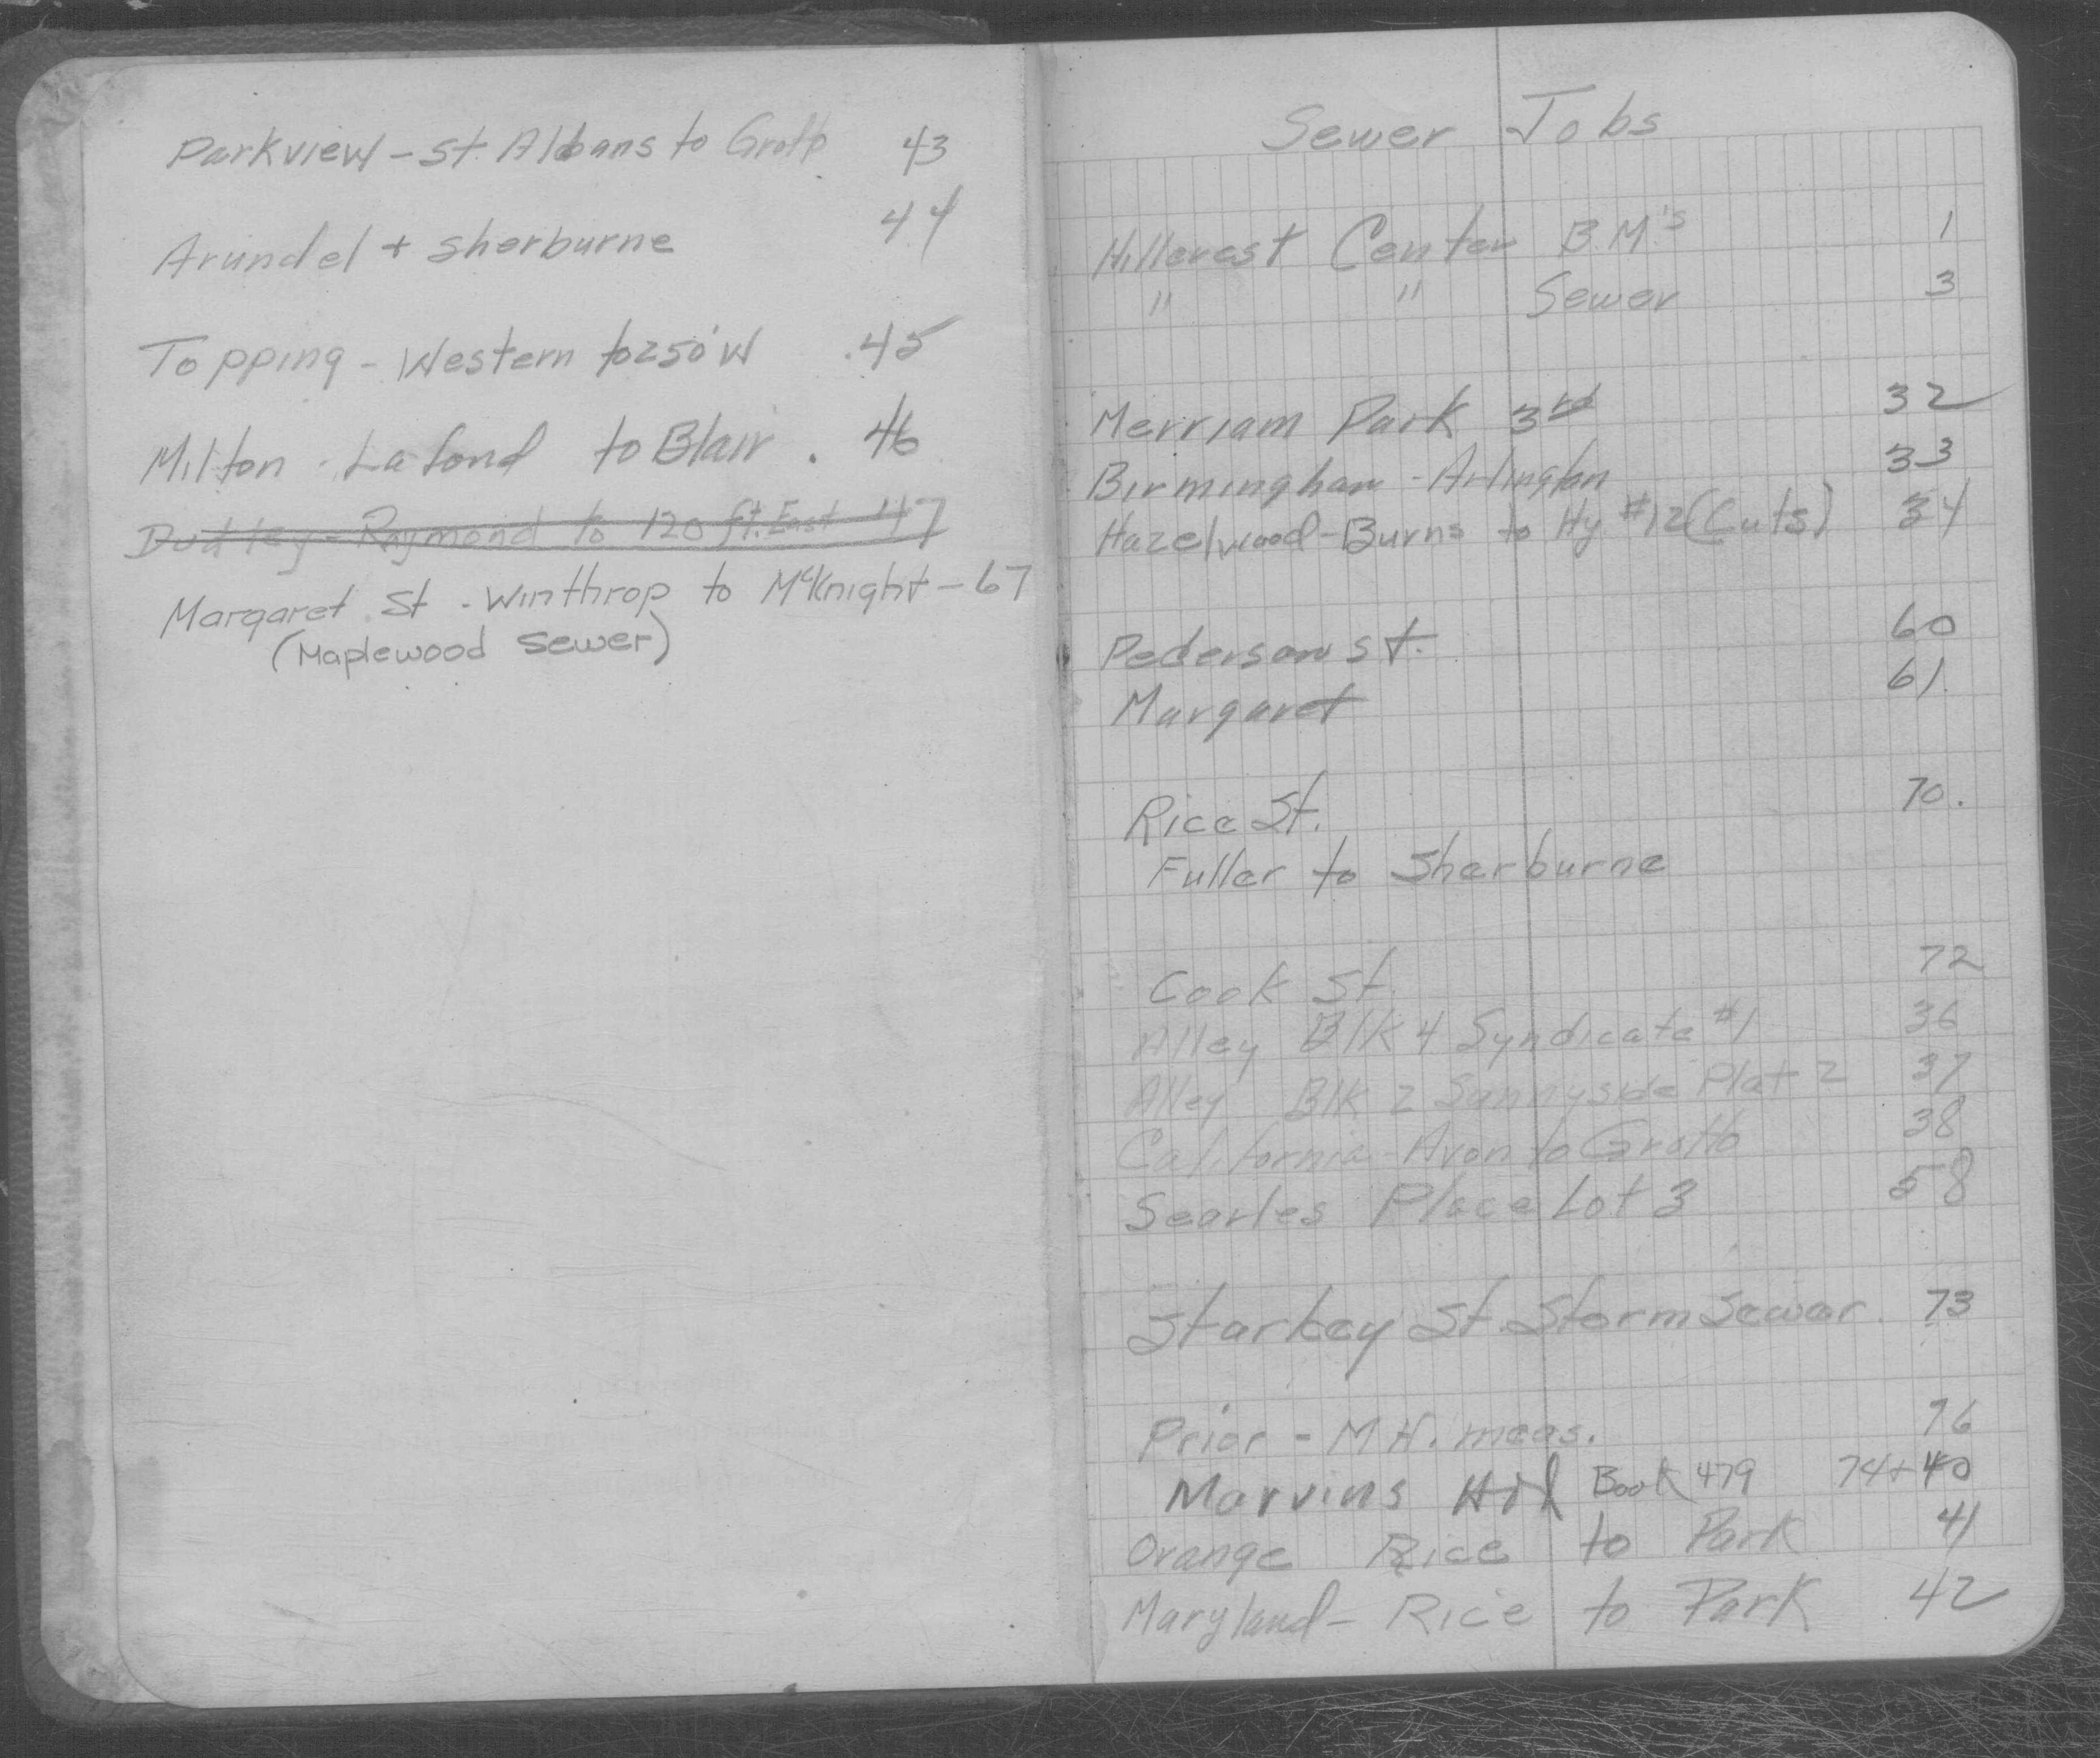 Parkview - St. Albans to Grotto 43
Arundel + Sherburne 44
Topping - Western to 250' W .45
Milton - Lafond to Blair . 46
Dudley - Raymond to 120 ft. East 47
Margaret St. - Winthrop to McKnight - 67
(Maplewood Sewer)
Sewer Jobs
Hillcrest Center B.M.'s 1
" " Sewer 3
Merriam Park 3rd 32
Birmingham - Arlington 33
Hazelwood - Burns to Hy #12 (Cuts) 34
Pederson St. 60
Margaret 61.
Rice St. 70.
Fuller to Sherburne
Cook St. 72
Alley Blk 4 Syndicate #1 36
Alley Blk 2 Sunnyside Plat 2 37
California - Avon to Grotto 38
Searles Place Lot 3 58
Starkey St. Storm Sewer. 73
Prior - M.H. meas. 76
Marvins Book 479 74 + 40
Orange Rice to Park 41
Maryland - Rice to Park 42